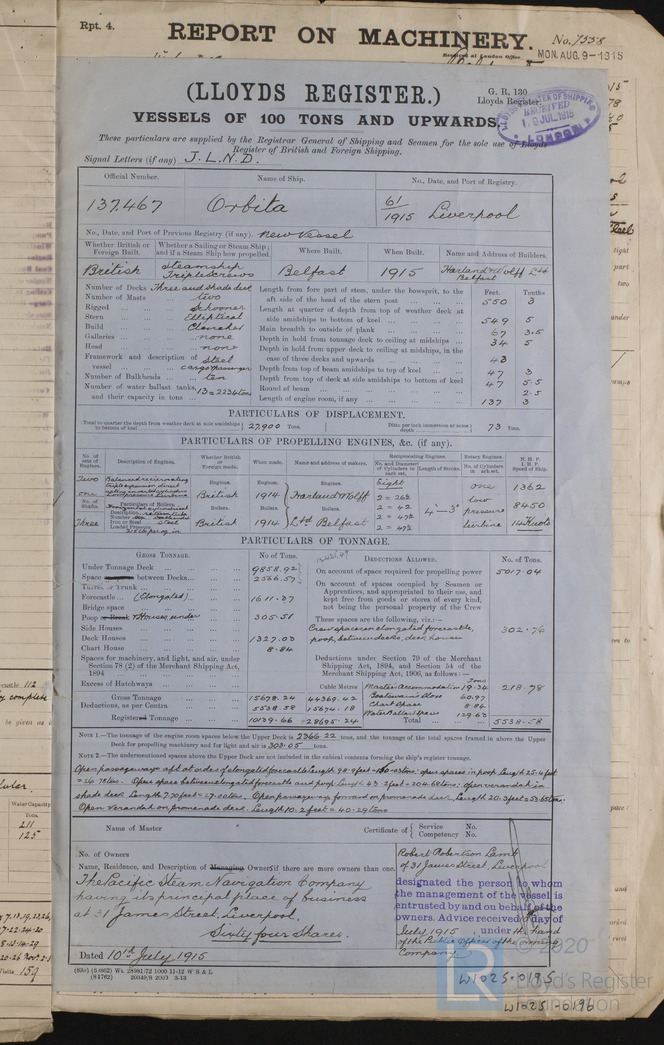 Rpt. 4.
REPORT ON MACHINERY.
No. 7558
Received at London Office
MON. AUG. 9 - 1915
(LLOYDS REGISTER.)
G. R. 130
Lloyds Register.
LLOYDS REGISTER OF SHIPPING
RECEIVED
LONDON
VESSELS OF 100 TONS AND UPWARDS.
These particulars are supplied by the Registrar General of Shipping and Seamen for the sole use of Lloyds
Register of British and Foreign Shipping.
Signal Letters (if any) J.L.N.D.
Official Number.
Name of Ship.
No., Date, and Port of Registry.
137.467
Orbita
61/1915 Liverpool
No., Date, and Port of Previous Registry (if any). New Vessel
Whether British or Foreign Built.
Whether a Sailing or Steam Ship; and if a Steam Ship how propelled.
Where Built.
When Built.
Name and Address of Builders.
British
Steamship Triple Screws
Belfast
1915
Harland & Wolff Ltd Belfast
Number of Decks Three and shade deck
Number of Masts two
Rigged Schooner
Stern Elliptical
Build Clencher
Galleries none
Head none
Framework and description of vessel Steel cargo & passenger
Number of Bulkheads ten
Number of water ballast tanks, and their capacity in tons 13 = 2234 tons
Feet. Tenths
Length from fore part of stem, under the bowsprit, to the aft side of the head of the stern post 550 3
Length at quarter of depth from top of weather deck at side amidships to bottom of keel 549 5
Main breadth to outside of plank 67 3.5
Depth in hold from tonnage deck to ceiling at midships 34 5
Depth in hold from upper deck to ceiling at midships, in the case of three decks and upwards 43
Depth from top of beam amidships to top of keel 47 3
Depth from top of deck at side amidships to bottom of keel 47 5.5
Round of beam 2.5
Length of engine room, if any 137 3
PARTICULARS OF DISPLACEMENT.
Total to quarter the depth from weather deck at side amidships to bottom of keel 27,900 Tons.
Ditto per inch immersion at same depth 73 Tons.
PARTICULARS OF PROPELLING ENGINES, &c. (if any).
No. of sets of Engines.
Description of Engines.
Whether British or Foreign made.
When made.
Name and address of makers.
Reciprocating Engines.
No. and Diameter of Cylinders in each set.
Length of Stroke.
Rotary Engines.
No. of Cylinders in each set.
N.H.P.
I.H.P.
Speed of Ship.
Two
one
No. of Shafts.
Three
Particulars of Boilers.
Number six
Iron or Steel steel
Loaded Pressure 215 lbs per sq in
Engines.
British
1914
Harland & Wolff
Boilers.
British
1914
Ltd Belfast
Eight
2 = 26½
2 = 42
2 = 47½
2 = 47½
4' - 3"
one
low
pressure
turbine
1362
8450
14 Knots
PARTICULARS OF TONNAGE.
GROSS TONNAGE.
No of Tons.
DEDUCTIONS ALLOWED.
No. of Tons.
Under Tonnage Deck 9858.92
Space between Decks 2566.57
Turret or Trunk
Forecastle (Elongated) 1611.37
Bridge space
Poop or Break & Houses under 305.51
Side Houses
Deck Houses 1327.03
Chart House 8.84
Spaces for machinery, and light, and air, under Section 78 (2) of the Merchant Shipping Act, 1894
Excess of Hatchways
On account of space required for propelling power 5017.04
On account of spaces occupied by Seamen or Apprentices, and appropriated to their use, and kept free from goods or stores of every kind, not being the personal property of the Crew
These spaces are the following, viz.:—
Crew spaces in elongated forecastle, poop, between decks, deck houses 302.76
Deductions under Section 79 of the Merchant Shipping Act, 1894, and Section 54 of the Merchant Shipping Act, 1906, as follows:—
Tons
Master's Accommodation 19.34
Boatswain's Stores 60.97
Chart Space 8.84
Water Ballast Space 129.63
218.78
Cubic Metres
Gross Tonnage 15678.24 44369.42
Deductions, as per Contra 5538.58 15674.18
Registered Tonnage 10139.66 = 28695.24
Total 5538.58
NOTE 1.—The tonnage of the engine room spaces below the Upper Deck is 2366.22 tons, and the tonnage of the total spaces framed in above the Upper
Deck for propelling machinery and for light and air is 303.05 tons.
NOTE 2.—The undermentioned spaces above the Upper Deck are not included in the cubical contents forming the ship's register tonnage.
Open verandah on promenade deck. Length 10.2 feet = 40.29 tons
Name of Master
Certificate of Service No. Competency No.
No. of Owners
Name, Residence, and Description of Managing Owners if there are more owners than one.
The Pacific Steam Navigation Company
having its principal place of business
at 31 James Street, Liverpool,
Sixty four Shares.
Robert Robertson Lamb
of 31 James Street, Liverpool
designated the person to whom
the management of the vessel is
entrusted by and on behalf of the
owners. Advice received 9 day of
July 1915, under the hand
of the Public Officer of the owning
Company
Dated 10th July 1915
W1025-0195
W1025-0196
© 2020
LR
Lloyd's Register
Foundation